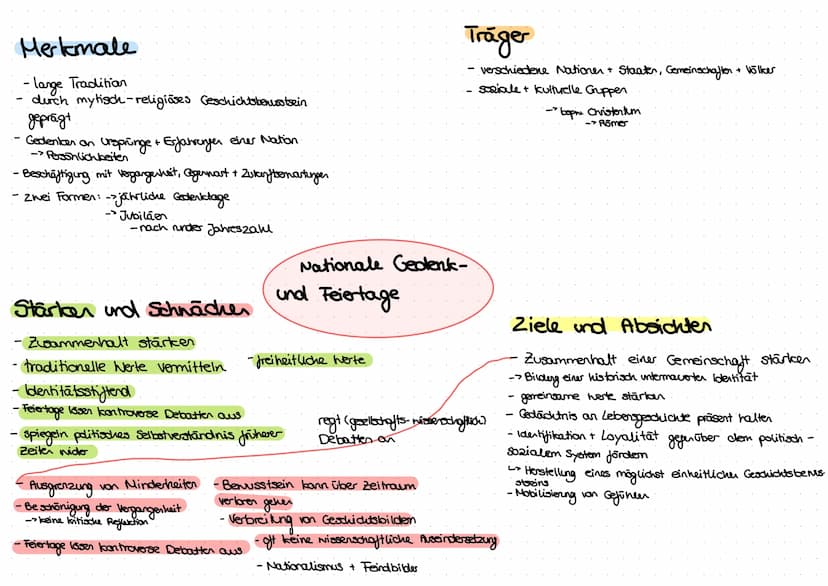 Merkmale
- lange Tradition
- durch mytisch-religiöses Geschichtsbewusstsein
geprägt
- Gedenken an Ursprünge + Erfahrungen einer Nation
-> Persönlichkeiten
- Beschäftigung mit Vergangenheit, Gegenwart + Zukunftserwartungen
- zwei Formen: -> jährliche Gedenktage
-> Jubiläen
- nach runder Jahreszahl
Träger
- verschiedene Nationen + Staaten, Gemeinschaften + Völker
- soziale + kulturelle Gruppen
-> Christentum
-> Römer
Nationale Gedenk-
und Feiertage
Stärken und Schwächen
- Zusammenhalt stärken
- traditionelle Werte vermitteln - freiheitliche Werte
- Identitätsstiftend
- Feiertage lösen kontroverse Debatten aus
- spiegeln politisches Selbstverständnis früherer
Zeiten wider
regt (gesellschafts-wissenschaftlich)
Debatten an
- Ausgrenzung von Minderheiten
- Beschönigung der Vergangenheit
-> keine kritische Reflektion
- Feiertage lösen kontroverse Debatten aus
- Bewusstsein kann über Zeitraum
verloren gehen
- Verbreitung von Geschichtsbildern
- oft keine wissenschaftliche Auseinandersetzung
- Nationalismus + Feindbilder
Ziele und Absichten
- Zusammenhalt einer Gemeinschaft stärken
-> Bildung einer historisch untermauerten Identität
- gemeinsame Werte stärken
- Gedächtnis an Lebensgeschichte präsent halten
- Identifikation + Loyalität gegenüber dem politisch-
sozialem System fördern
↳ Herstellung eines möglichst einheitlichen Geschichtsbewus-
stseins
- Mobilisierung von Gefühlen